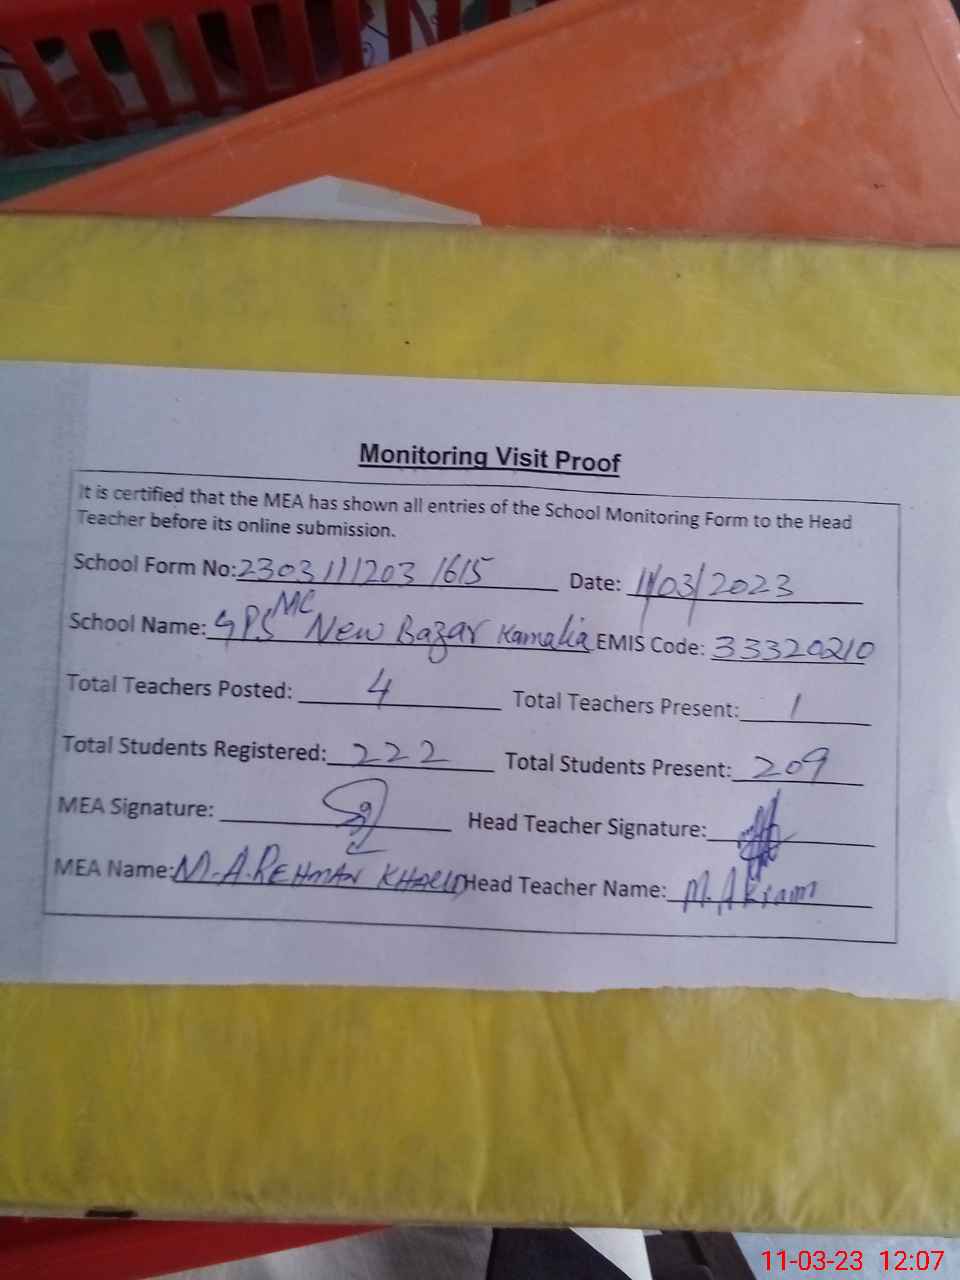 Monitoring Visit Proof
It is certified that the MEA has shown all entries of the School Monitoring Form to the Head
Teacher before its online submission.
School Form No: 2303111203 1615 Date: 11/03/2023
School Name: GPS MC New Bazar Kamalia EMIS Code: 33320210
Total Teachers Posted: 4 Total Teachers Present: 1
Total Students Registered: 222 Total Students Present: 209
MEA Signature: Head Teacher Signature:
MEA Name: M.A.REHMAN KHALID Head Teacher Name: M. Akram
11-03-23 12:07